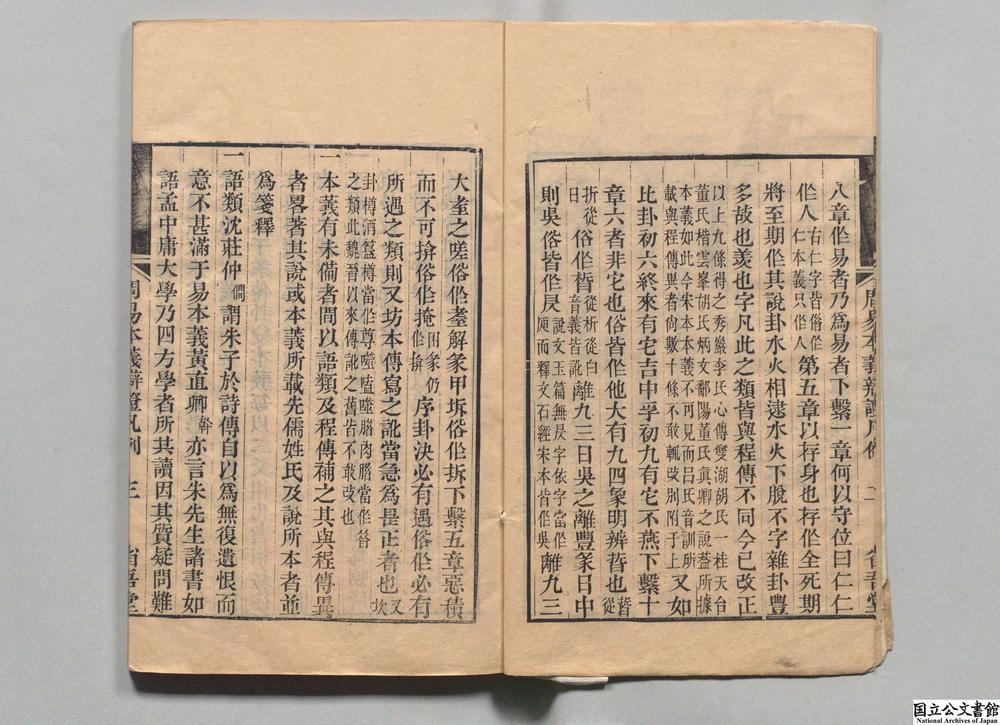 八章作易者乃爲易者下繫一章何以守位曰仁仁
作人右仁字皆俗作人仁本義只作人第五章以存身也存作全死期
將至期作其說卦水火相逮水火下脫不字雜卦豐
多故也羨也字凡此之類皆與程傳不同今已改正
以上九條得之秀巖李氏心傳雙湖胡氏一桂天台
董氏楷雲峯胡氏炳文鄱陽董氏眞卿之說葢所據
本義如此今宋本本義不可見而呂氏音訓所
載與程傳異者尚數十條不敢輒改別附于上又如
比卦初六終來有它吉中孚初九有它不燕下繫十
章六者非它也俗皆作他大有九四象明辨晢也皆從
折從日俗作晳從析從白音義皆訛離九三日昃之離豐彖日中
則昃俗皆作說文玉篇無字依字當作而釋文石經宋本皆作昃離九三
周易本義辨證凡例
二
省吾堂
大耋之嗟俗作耊解彖甲坼俗作拆下繫五章惡積
而不可揜俗作掩困彖仍作揜序卦決必有遇俗作必有
所遇之類則又坊本傳寫之訛當急爲是正者也又坎
卦樽酒簋樽當作尊噬嗑噬腊肉腊當作昔
之類此魏晉以來傳訛之舊皆不敢改也
一本義有未備者間以語類及程傳補之其與程傳異
者畧著其說或本義所載先儒姓氏及說所本者並
爲箋釋
一語類沈莊仲僩謂朱子於詩傳自以爲無復遺恨而
意不甚滿于易本義黃直卿榦亦言朱先生諸書如
語孟中庸大學乃四方學者所共讀因其質疑問難
周易本義辨證凡例
三
省吾堂
国立公文書館
National Archives of Japan